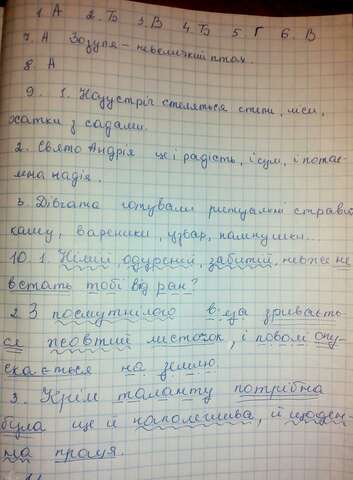 1. А 2. Б 3. В 4. Б 5. Г 6. В
7. А Зозуля – невеличкий птах.
8. А
9. 1. Назустріч стеляться степи, ліси,
хатки з садами.
2. Свято Андрія це і радість, і сум, і потає-
мна надія.
3. Дівчата готували ритуальні страви:
кашу, вареники, узвар, пампушки...
10. 1. Німий, одурений, забитий, невже не
встать тобі від ран?
2. З посмутнілого в'яза зриваєть-
ся жовтий листочок, і поволі опу-
скається на землю.
3. Крім таланту потрібна
була ще й наполеглива, й щоден-
на праця.